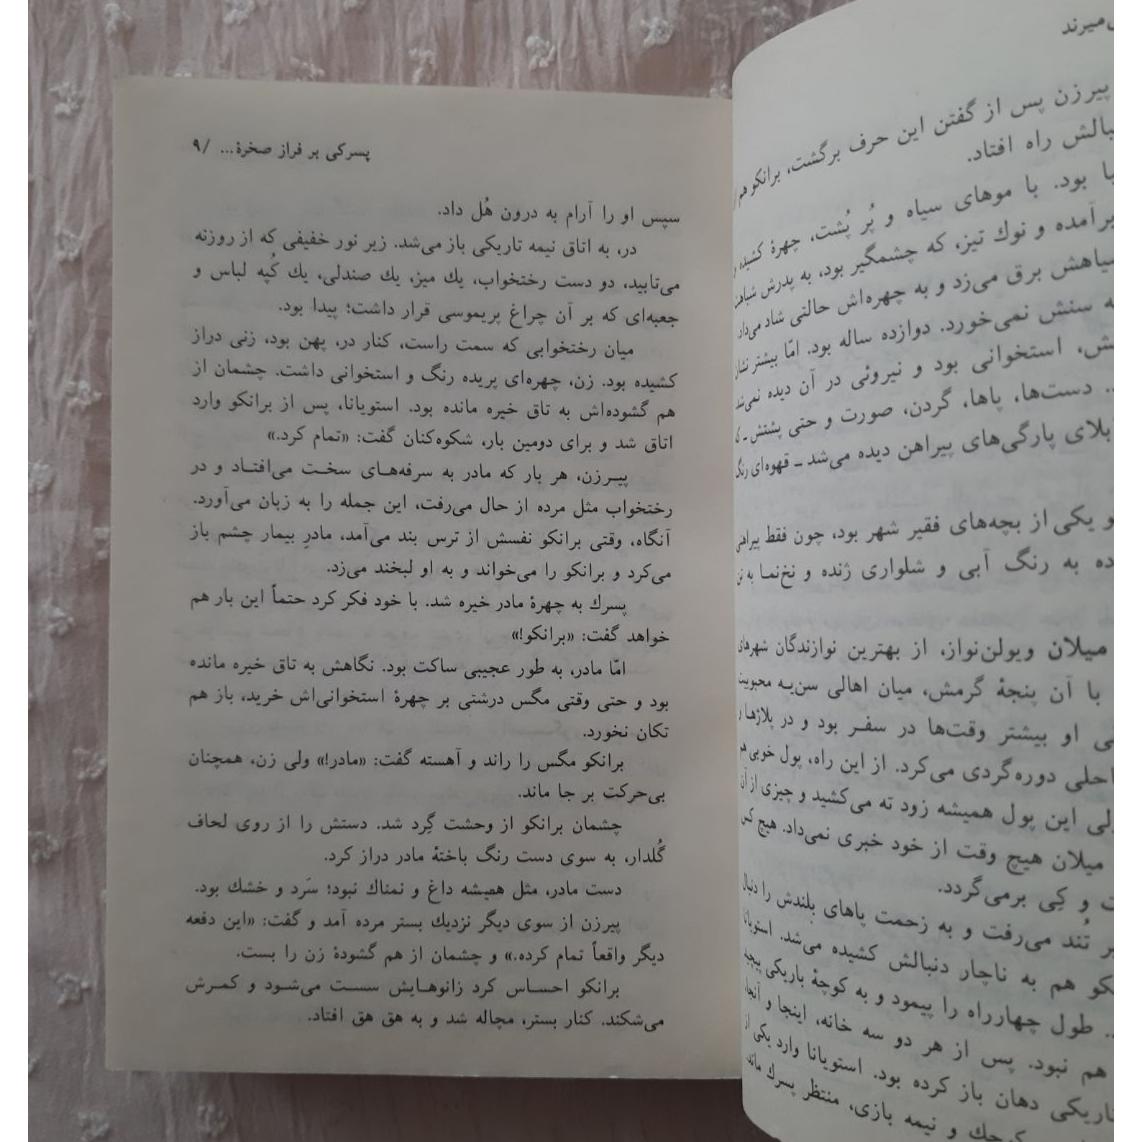 ی‌میرند
پیرزن پس از گفتن این حرف برگشت، برانکو هم
بالش راه افتاد.
با بود. با موهای سیاه و پُر پُشت، چهرهٔ کشیده
برآمده و نوك تیز، که چشمگیر بود، به پدرش شباهت
سیاهش برق می‌زد و به چهره‌اش حالتی شاد می‌داد.
ه سنش نمی‌خورد. دوازده ساله بود. امّا بیشتر نشان
ش، استخوانی بود و نیروئی در آن دیده نمی‌شد
دست‌ها، پاها، گردن، صورت و حتی پشتش ـ که
بلای پارگی‌های پیراهن دیده می‌شد ـ قهوه‌ای رنگ
و یکی از بچه‌های فقیر شهر بود، چون فقط پیراهنی
ده به رنگ آبی و شلواری ژنده و نخ‌نما به تن
میلان ویولن‌نواز، از بهترین نوازندگان شهرهای
با آن پنجهٔ گرمش، میان اهالی سن‌یه محبوبیت
ی او بیشتر وقت‌ها در سفر بود و در پلاژها
احلی دوره‌گردی می‌کرد. از این راه، پول خوبی هم
لی این پول همیشه زود ته می‌کشید و چیزی از آن
میلان هیچ وقت از خود خبری نمی‌داد. هیچ کس
ت و کِی برمی‌گردد.
ر تُند می‌رفت و به زحمت پاهای بلندش را دنبال
کو هم به ناچار دنبالش کشیده می‌شد. استویانا
طول چهارراه را پیمود و به کوچهٔ باریکی پیچید
هم نبود. پس از هر دو سه خانه، اینجا و آنجا،
تاریکی دهان باز کرده بود. استویانا وارد یکی از
کوچك و نیمه بازی، منتظر پسرك ماند.
پسرکی بر فراز صخرهٔ... /۹
سپس او را آرام به درون هُل داد.
در، به اتاق نیمه تاریکی باز می‌شد. زیر نور خفیفی که از روزنه
می‌تابید، دو دست رختخواب، یك میز، یك صندلی، یك کُپه لباس و
جعبه‌ای که بر آن چراغ پریموسی قرار داشت؛ پیدا بود.
میان رختخوابی که سمت راست، کنار در، پهن بود، زنی دراز
کشیده بود. زن، چهره‌ای پریده رنگ و استخوانی داشت. چشمان از
هم گشوده‌اش به تاق خیره مانده بود. استویانا، پس از برانکو وارد
اتاق شد و برای دومین بار، شکوه‌کنان گفت: «تمام کرد.»
پیرزن، هر بار که مادر به سرفه‌های سخت می‌افتاد و در
رختخواب مثل مرده از حال می‌رفت، این جمله را به زبان می‌آورد.
آنگاه، وقتی برانکو نفسش از ترس بند می‌آمد، مادرِ بیمار چشم باز
می‌کرد و برانکو را می‌خواند و به او لبخند می‌زد.
پسرك به چهرهٔ مادر خیره شد. با خود فکر کرد حتماً این بار هم
خواهد گفت: «برانکو!»
امّا مادر، به طور عجیبی ساکت بود. نگاهش به تاق خیره مانده
بود و حتی وقتی مگس درشتی بر چهرهٔ استخوانی‌اش خرید، باز هم
تکان نخورد.
برانکو مگس را راند و آهسته گفت: «مادر!» ولی زن، همچنان
بی‌حرکت بر جا ماند.
چشمان برانکو از وحشت گِرد شد. دستش را از روی لحاف
گُلدار، به سوی دست رنگ باختهٔ مادر دراز کرد.
دست مادر، مثل همیشه داغ و نمناك نبود؛ سَرد و خشك بود.
پیرزن از سوی دیگر نزدیك بستر مرده آمد و گفت: «این دفعه
دیگر واقعاً تمام کرده.» و چشمان از هم گشودهٔ زن را بست.
برانکو احساس کرد زانوهایش سست می‌شود و کمرش
می‌شکند. کنار بستر، مچاله شد و به هق هق افتاد.